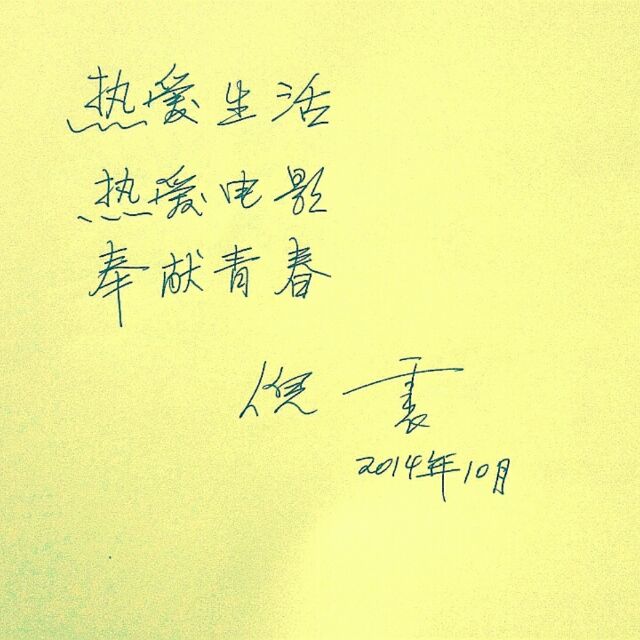 热爱生活
热爱电影
奉献青春
倪震
2014年10月